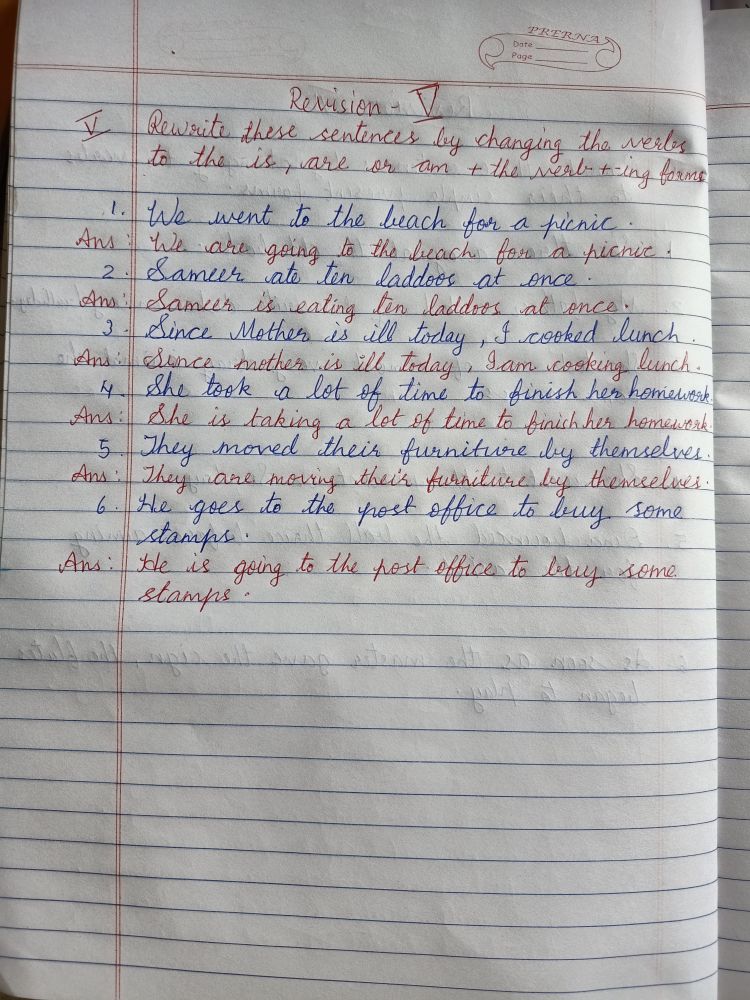 PRERNA
Date
Page
Revision - V
V Rewrite these sentences by changing the verbs
to the is, are or am + the verb + -ing forms
1. We went to the beach for a picnic.
Ans: We are going to the beach for a picnic.
2. Sameer ate ten laddoos at once.
Ans: Sameer is eating ten laddoos at once.
3. Since Mother is ill today, I cooked lunch.
Ans: Since mother is ill today, I am cooking lunch.
4. She took a lot of time to finish her homework.
Ans: She is taking a lot of time to finich her homework.
5. They moved their furniture by themselves.
Ans: They are moving their furniture by themselves.
6. He goes to the post office to buy some
stamps.
Ans: He is going to the post office to buy some
stamps.